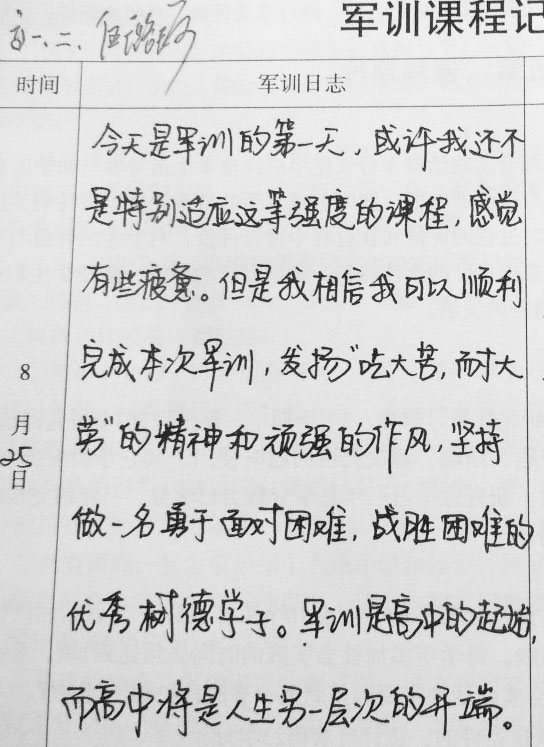 军训课程记
高一、二、伍璐
时间
军训日志
今天是军训的第一天，或许我还不
是特别适应这等强度的课程，感觉
有些疲惫。但是我相信我可以顺利
完成本次军训，发扬“吃大苦，耐大
劳”的精神和顽强的作风，坚持
做一名勇于面对困难，战胜困难的
优秀树德学子。军训是高中的起始，
而高中将是人生另一层次的开端。
8
月
25
日